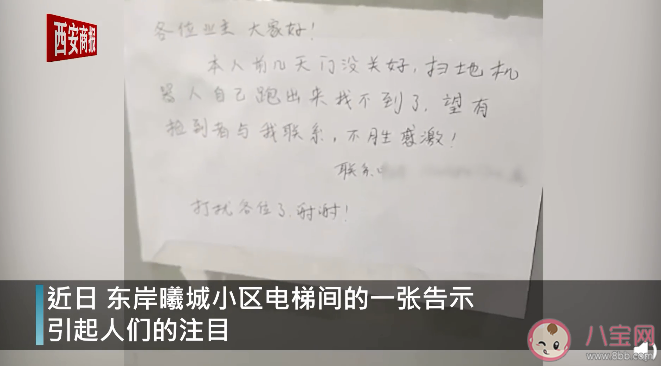 西安商报
各位业主 大家好！
本人前几天门没关好，扫地机
器人自己跑出来找不到了，望有
捡到者与我联系，不胜感激！
联系
打扰各位了 谢谢！
近日 东岸曦城小区电梯间的一张告示
引起人们的注目
八宝网
www.8bb.com